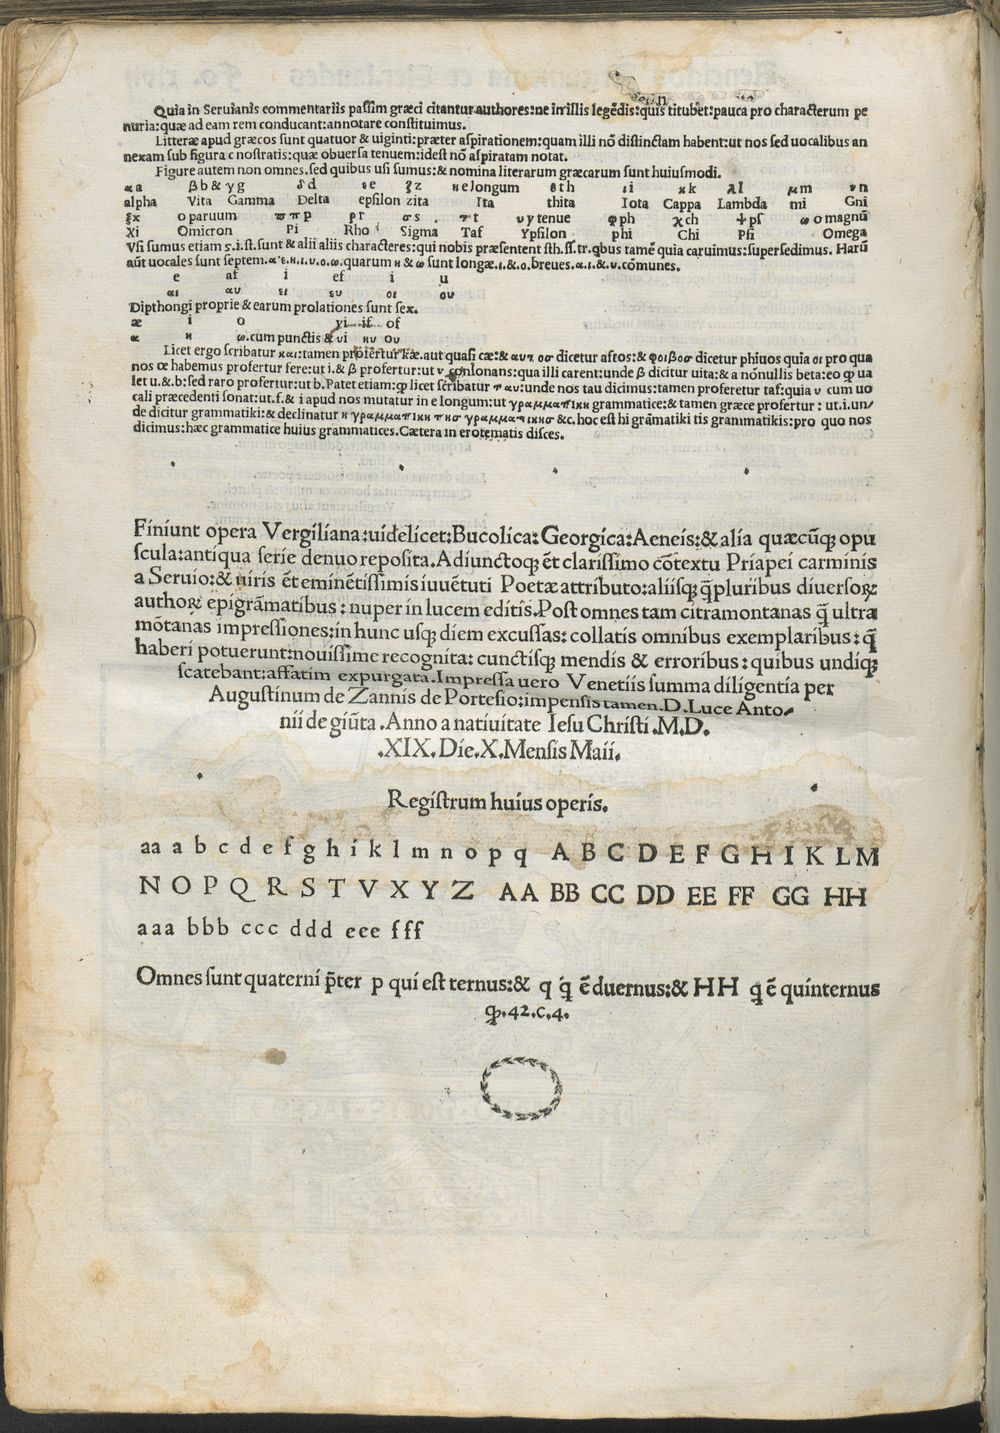 Quia in Seruianis commentariis passim græci citantur authores: ne in illis legẽdis: quis titubet: pauca pro characterum pe
nuria: quæ ad eam rem conducant: annotare constituimus.
Litteræ apud græcos sunt quatuor & uiginti: præter aspirationem: quam illi nõ distinctam habent: ut nos sed uocalibus an
nexam sub figura c nostratis: quæ obuersa tenuem: idest nõ aspiratam notat.
Figure autem non omnes. sed quibus usi sumus: & nomina literarum græcarum sunt huiusmodi.
α a β b & γ g δ d ε e ζ z н e longum θ th ι i κ k λ l μ m ν n
alpha Vita Gamma Delta epsilon zita Ita thita Iota Cappa Lambda mi Gni
ξ x o paruum ϖ π p ρ r σ s . τ t υ y tenue φ ph χ ch ψ ps ω o magnũ
Xi Omicron Pi Rho Sigma Taf Ypsilon phi Chi Psi Omega
Vsi sumus etiam ϛ. i. st. sunt & alii aliis characteres: qui nobis præsentent sth. ss. tr. qbus tamẽ quia caruimus: supersedimus. Harũ
aũt uocales sunt septem. α. ε. н. ι. υ. ο. ω. quarum н & ω sunt longæ. ε. & . ο. breues. α. ι. & . υ. cõmunes.
e af i ef i u
αι αυ ει ευ οι ου
Dipthongi proprie & earum prolationes sunt sex.
æ i o yi if of
ᾳ н ω. cum punctis & υι нυ ωυ
Licet ergo scribatur και: tamen profertur kæ. aut quasi cæ: & αυτοσ dicetur aftos: & φοιβοσ dicetur phiuos quia οι pro qua
nos œ habemus profertur fere: ut i. & β profertur: ut v consonans: qua illi carent: unde β dicitur uita: & a nõnullis beta: eo ꝙ ua
let u. & b: sed raro profertur: ut b. Patet etiam: ꝙ licet scribatur ταυ: unde nos tau dicimus: tamen proferetur taf: quia υ cum uo
cali præcedenti sonat: ut. f. & i apud nos mutatur in e longum: ut γραμματικн grammatice: & tamen græce profertur: ut. i. un/
de dicitur grammatiki: & declinatur н γραμματικн τнσ γραμματικнσ &c. hoc est hi grãmatiki tis grammatikis: pro quo nos
dicimus: hæc grammatice huius grammatices. Cætera in erotematis disces.
Finiunt opera Vergiliana: uidelicet: Bucolica: Georgica: Aeneis: & alia quæcũqꝫ opu
scula: antiqua serie denuo reposita. Adiunctoqꝫ ẽt clarissimo cõtextu Priapei carminis
a Seruio: & uiris ẽt eminẽtissimis iuuẽtuti Poetæ attributo: aliisqꝫ q̃pluribus diuersoꝝ
authoꝝ epigrãmatibus: nuper in lucem editis. Post omnes tam citramontanas q̃ ultra
mõtanas impressiones: in hunc usqꝫ diem excussas: collatis omnibus exemplaribus: q̃
haberi potuerunt: nouissime recognita: cunctisqꝫ mendis & erroribus: quibus undiqꝫ
scatebant: affatim expurgata. Impressa uero Venetiis summa diligentia per
Augustinum de Zannis de Portesio: impensis tamen. D. Luce Anto/
nii de giũta. Anno a natiuitate Iesu Christi. M.D.
.XIX. Die. X. Mensis Maii.
Registrum huius operis.
aa a b c d e f g h i k l m n o p q A B C D E F G H I K L M
N O P Q R S T V X Y Z AA BB CC DD EE FF GG HH
aaa bbb ccc ddd eee fff
Omnes sunt quaterni p̃ter p qui est ternus: & q q̇ ẽ duernus: & HH q̇ ẽ quinternus
ꝙ. 42. c. 4.